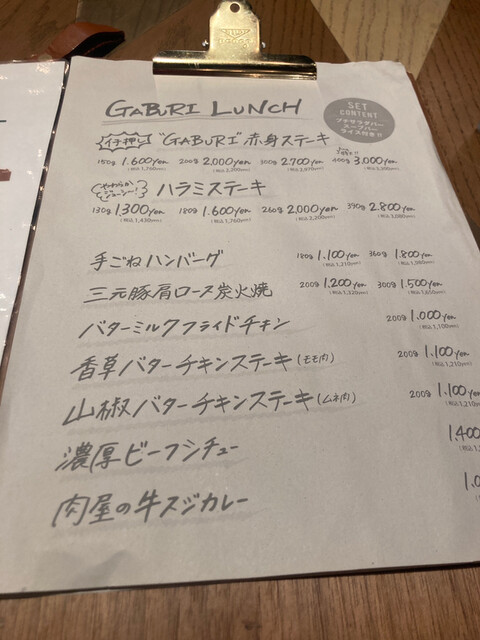 GABURI LUNCH
SET
CONTENT
プチサラダバー
スープバー
ライス付き!!
イチ押し "GABURI"赤身ステーキ
150g 1.600yen 200g 2,000yen 300g 2.700yen 400g 3.000yen
(税込1,760yen) (税込2,200yen) (税込2,970yen) (税込3,300yen)
ハラミステーキ
130g 1,300yen 180g 1.600yen 260g 2,000yen 390g 2.800yen
(税込1,430yen) (税込1,760yen) (税込2,200yen) (税込3,080yen)
手ごねハンバーグ 180g 1,100yen 360g 1.800yen
(税込1,210yen) (税込1,980yen)
三元豚肩ロース炭火焼 200g 1.200yen 300g 1.500yen
(税込1,320yen) (税込1,650yen)
バターミルクフライドチキン 200g 1.000yen
(税込1,100yen)
香草バターチキンステーキ(モモ肉) 200g 1,100yen
(税込1,210yen)
山椒バターチキンステーキ(ムネ肉) 200g 1,100yen
(税込1,210yen)
濃厚ビーフシチュー 1,400
肉屋の牛スジカレー 1.0